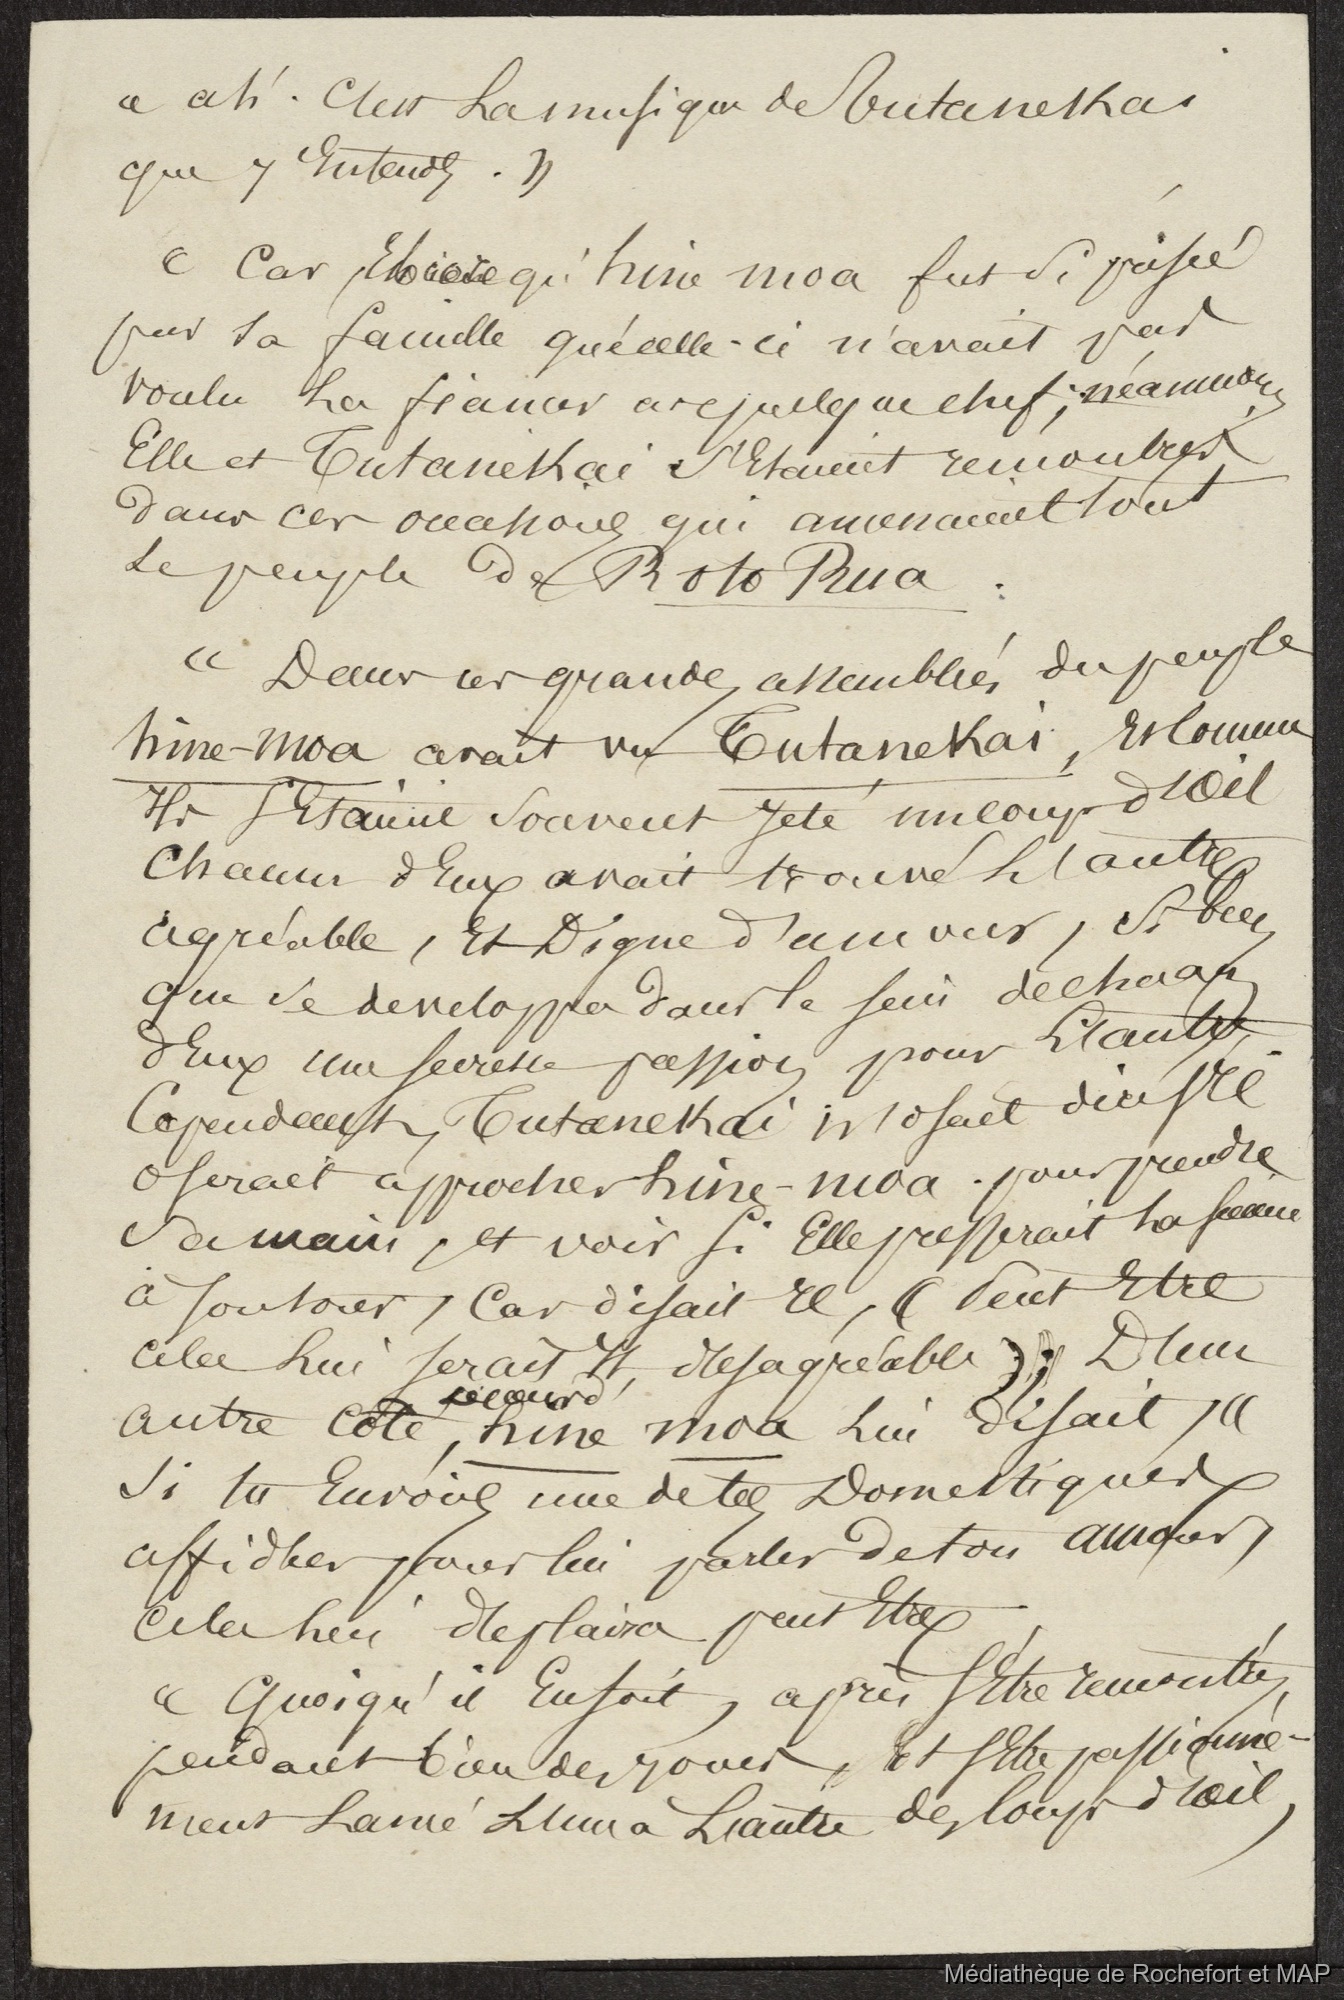 « ah ! C'est La musique de Tutanekai
que J'Entends. »
« Car, Ebien qu'hine moa fut si prisée
par sa famille qu'ecelle-ci n'avait pas
voulu La fiancer avec quelque chef ; néanmoins
Elle et Tutanekai s'Etaient rencontrés
dans ces occasions qui amenaient tout
Le peuple de Roto Rua .
« Dans ces grandes assemblées du peuple
hine-moa avait vu Tutanekai, Et comme
Ils s'Etaient souvent Jeté un coup d'œil
Chacun d'Eux avait trouvé L'autre
agréable, Et Digne d'amour, si bien
que se developpa dans le sein de chacun
d'Eux une secrette passion pour L'autre
Cependant, Tutanekai n'osait dire s'Il
oserait approcher hine-moa . pour prendre
sa main, et voir si Elle presserait La sienne
à son tour, Car disait Il, « Peut Etre
cela Lui serait Il, désagréable » ; D'un
autre Côté, hine moa Lui disait, «
Si tu Envoies une de tes Domestiques
affidées pour lui parler de ton amour,
Cela Lui déplaira peut Etre
« Quoiqu'il En soit, après s'Etre rencontrés
pendant bien des jours, Et s'Etre passionné-
ment Lancé L'un à L'autre des Coups d'œil,
Médiathèque de Rochefort et MAP